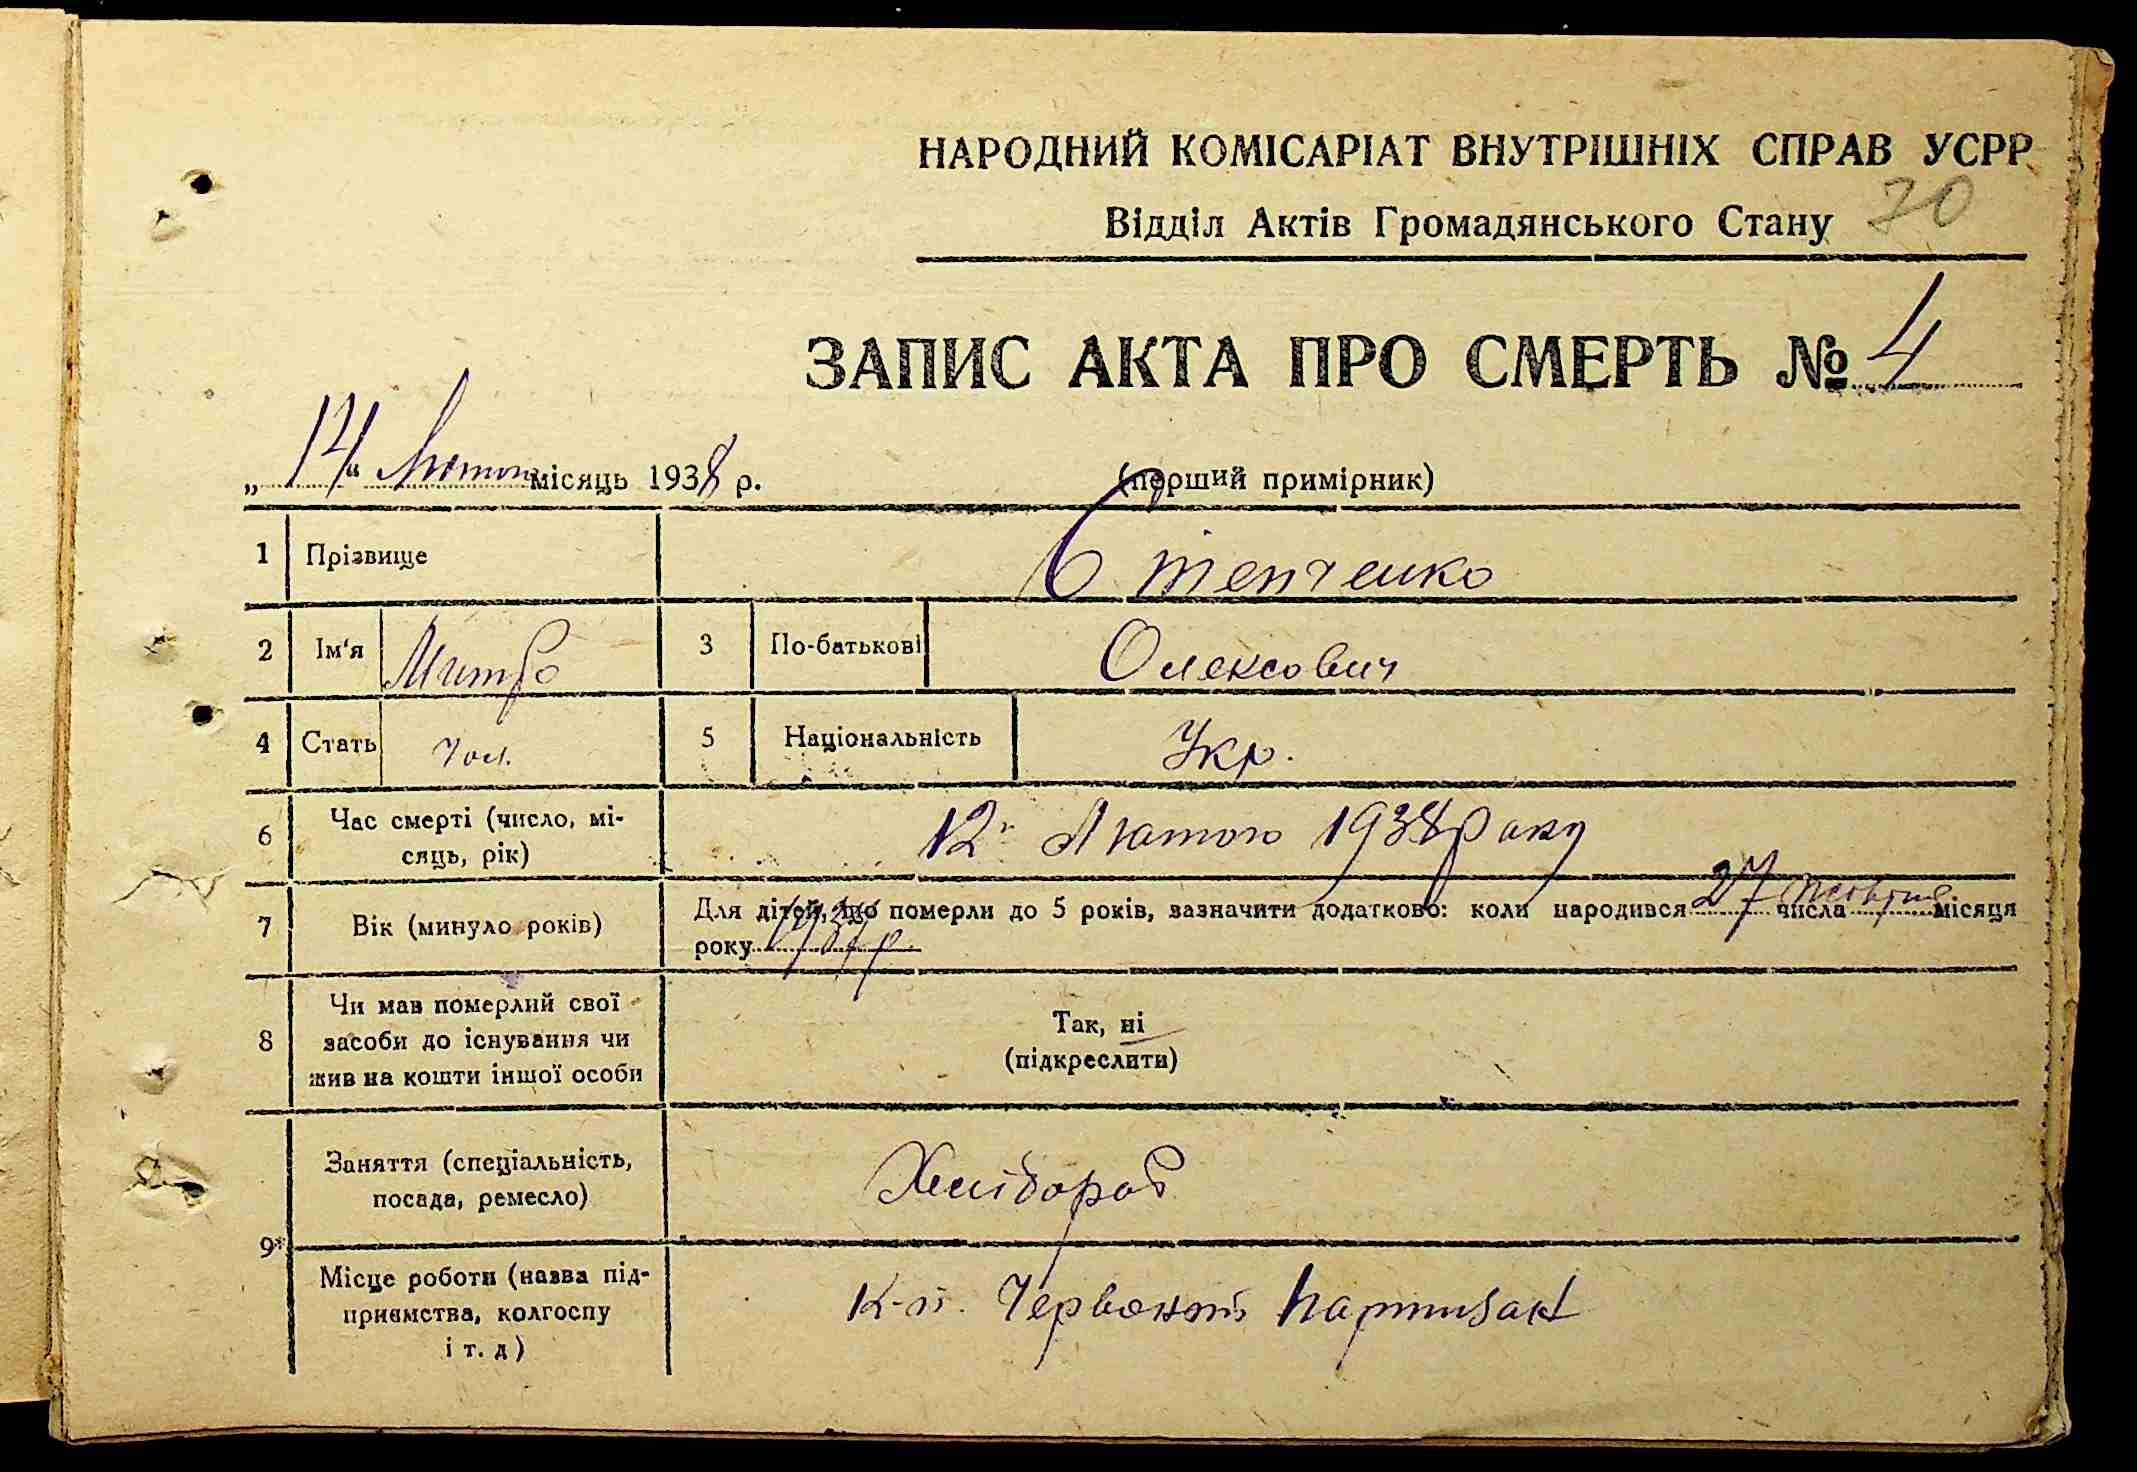 НАРОДНИЙ КОМІСАРІАТ ВНУТРІШНІХ СПРАВ УСРР
Відділ Актів Громадянського Стану 70
ЗАПИС АКТА ПРО СМЕРТЬ № 4
„14“ Лютого місяць 1938 р. (перший примірник)
1 Прізвище Степченко
2 Ім'я Митро 3 По-батькові Олексович
4 Стать Чол. 5 Національність Укр.
6 Час смерті (число, мі-
сяць, рік) 12 Лютого 1938 року
7 Вік (минуло років) Для дітей, що померли до 5 років, зазначити додатково: коли народився 27 числа місяця
року
8 Чи мав померлий свої
засоби до існування чи
жив на кошти іншої особи
Так, ні
(підкреслити)
9 Заняття (спеціальність,
посада, ремесло) Хлібороб
Місце роботи (назва під-
приємства, колгоспу
і т. д) Червоний Партизан